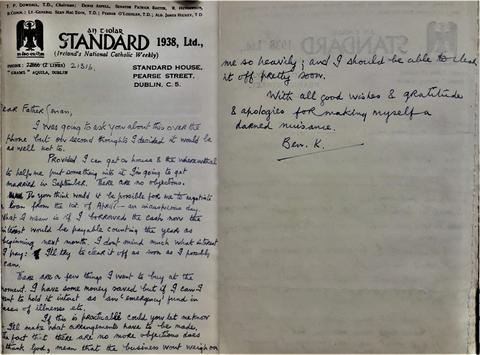 T. P. DOWDALL, T.D., Chairman; DENIS ASPELL, SENATOR PATRICK BAXTER, W.
B.COMM.; LT.-GENERAL SEAN MAC EOIN, T.D.; PEADAR O'LOGHLEN, T.D.; ALD. JAMES HICKEY, T.D.
AN tIOLAR
STANDARD 1938, Ltd.,
(Ireland's National Catholic Weekly)
PHONE: (2 LINES) 21316.
"GRAMS" AQUILA, DUBLIN
STANDARD HOUSE,
PEARSE STREET,
DUBLIN, C. 5.
Dear Father Senan,
I was going to ask you about this over the
phone but on second thoughts I decided it would be
as well not to.
Provided I can get a house & the wherewithal
to help me put something into it I'm going to get
married in September. There are no objections.
Do you think would it be possible for me to negotiate
a loan from the 1st of April — an inauspicious day.
What I mean is if I borrowed the cash now the
interest would be payable counting the year as
beginning next month. I don't mind much what interest
I pay: I'll try to clear it off as soon as I possibly
can.
There are a few things I want to buy at the
moment. I have some money saved but if I can I
want to hold it intact as an 'emergency' fund in
case of illness etc.
If this is practicable could you let me know
I'll make what arrangements have to be made.
The fact that there are no more objections does
thank God, mean that the business won't weigh on
me so heavily; and I should be able to clear
it off pretty soon.
With all good wishes & gratitude
& apologies for making myself a
darned nuisance.
Ben. K.